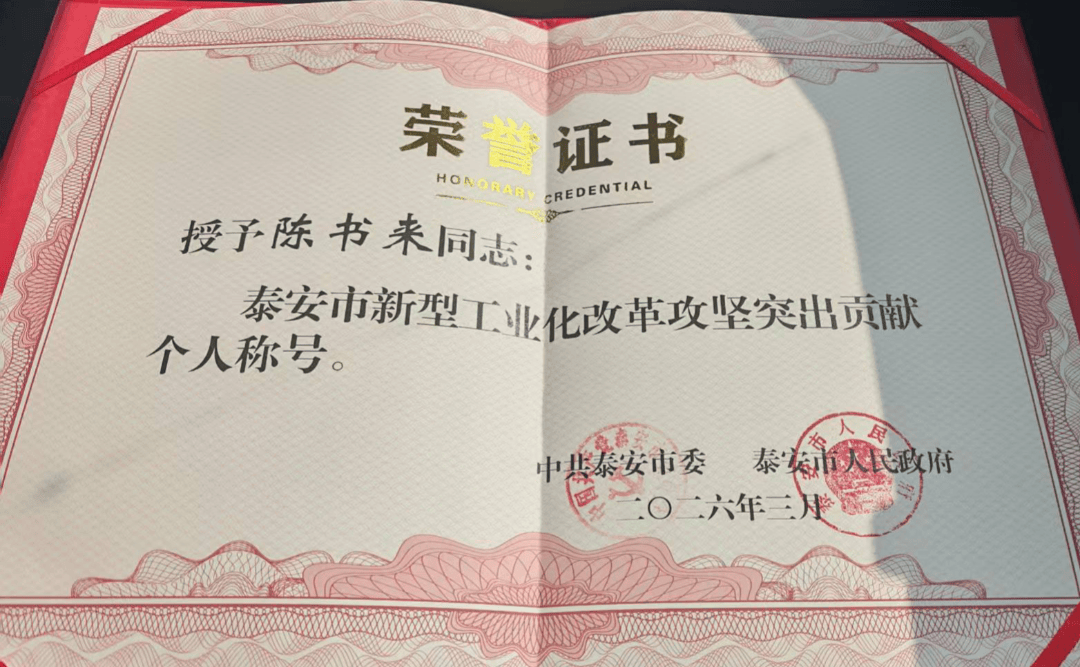 荣誉证书
HONORARY CREDENTIAL
授予陈书来同志：
泰安市新型工业化改革攻坚突出贡献
个人称号。
中共泰安市委 泰安市人民政府
二〇二六年三月